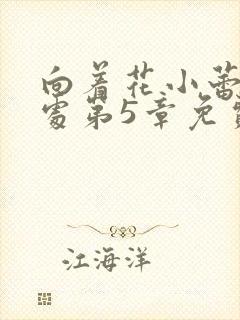 向着花小蕾
处第5章免费
江海洋